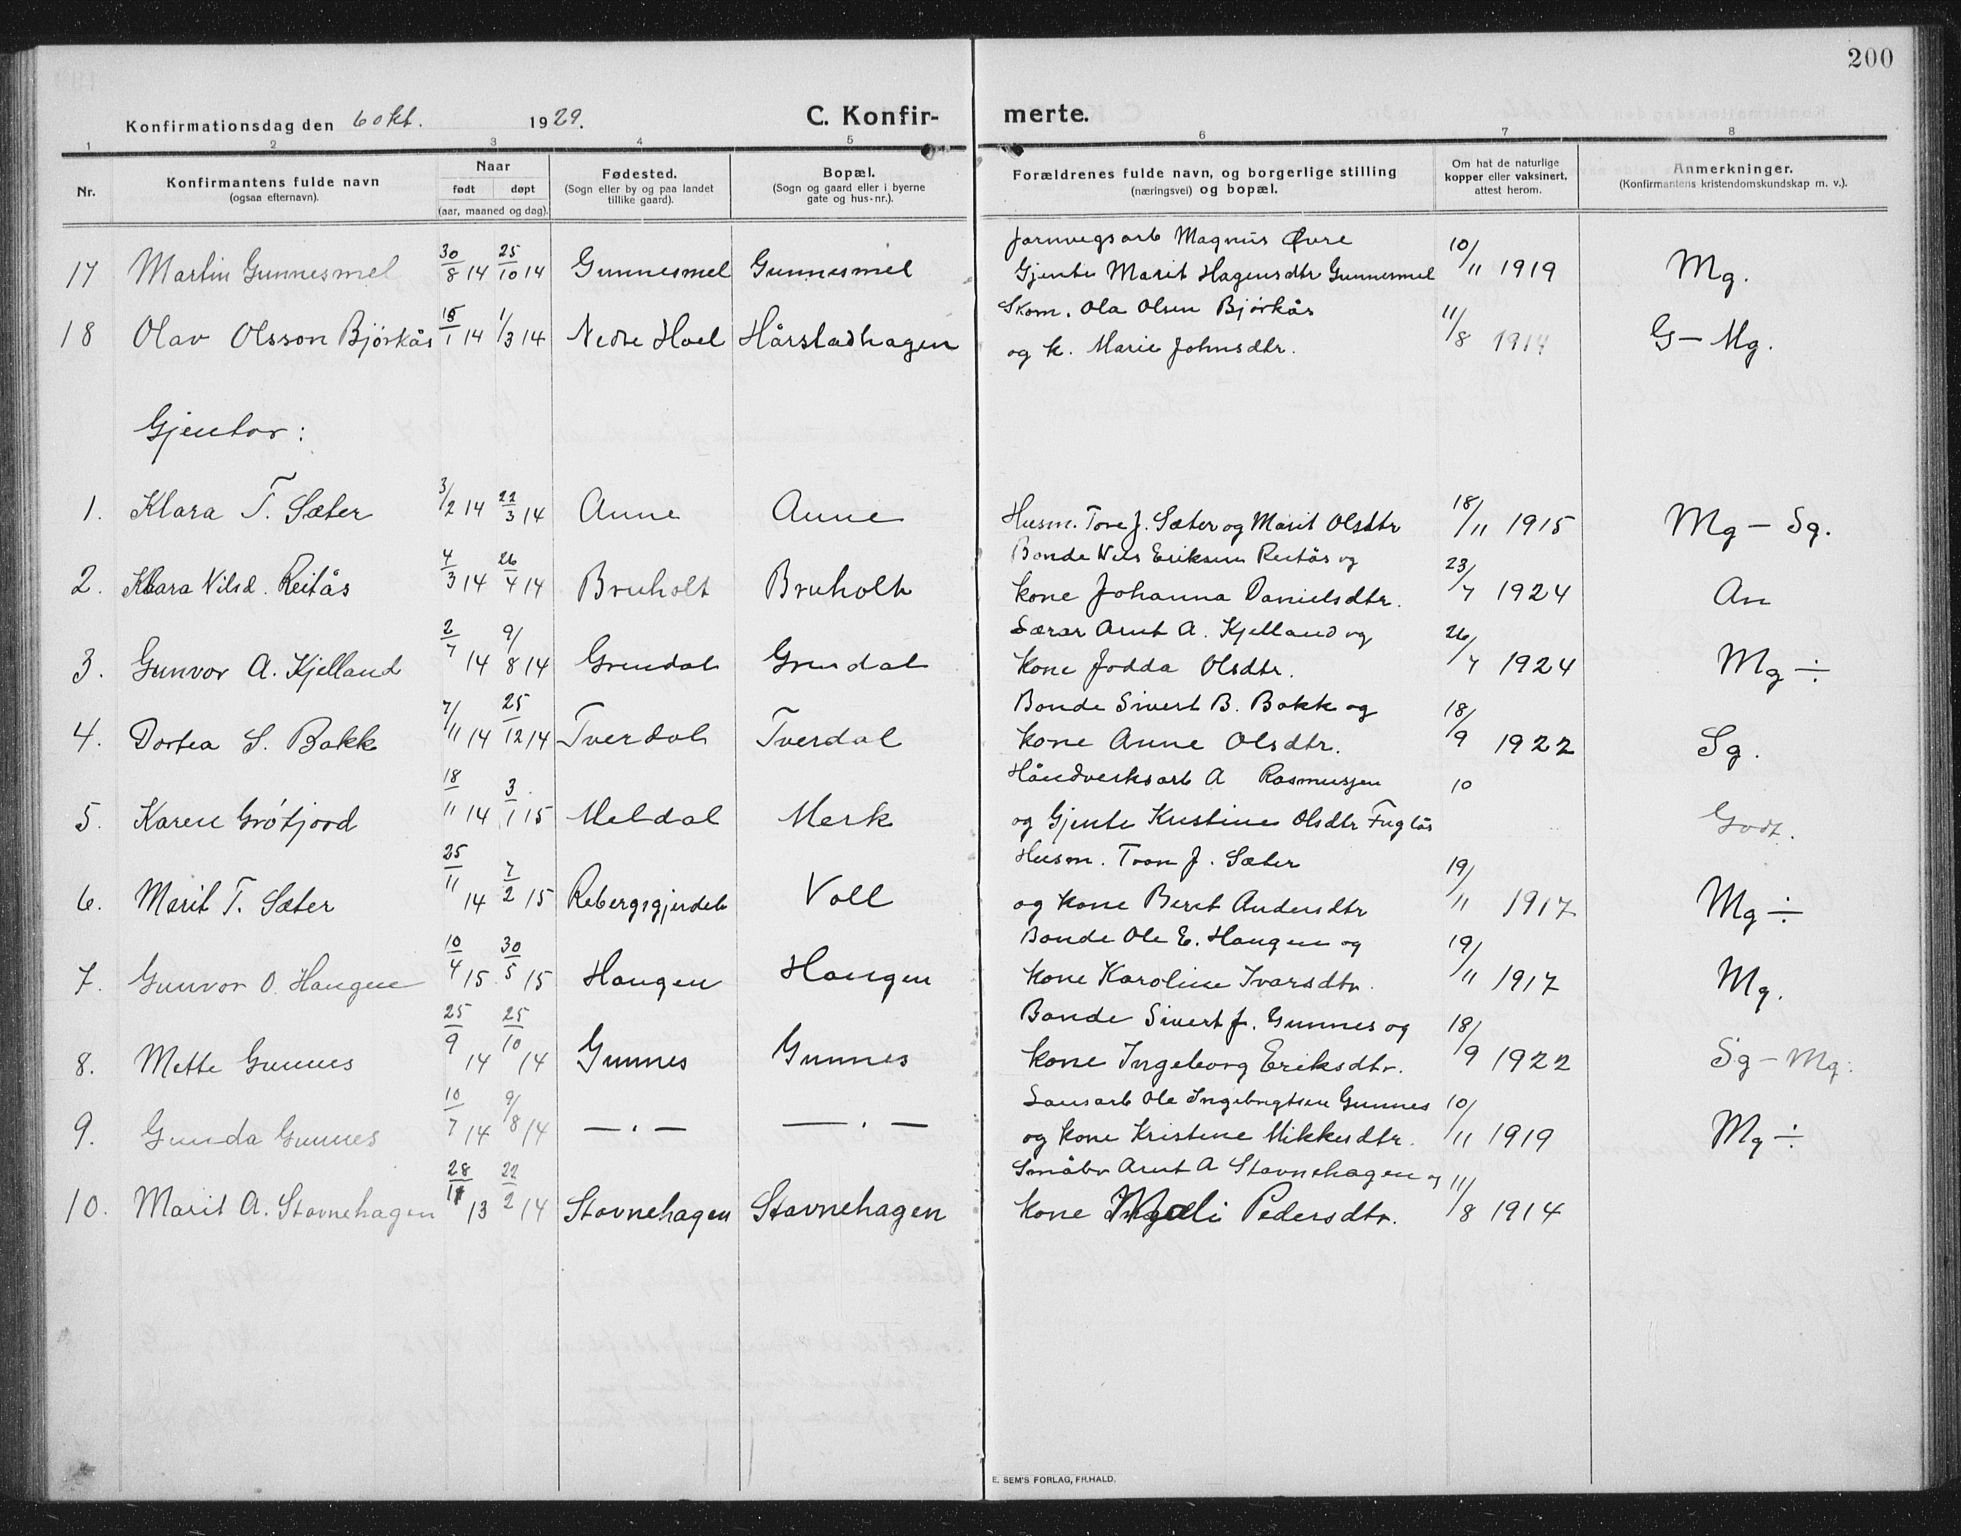 200
Konfirmationsdag den 6 okt. 1929.
C. Konfir- merte.
1 2 3 4 5 6 7 8
Nr.
Konfirmantens fulde navn
(ogsaa efternavn).
Naar
født døpt
(aar, maaned og dag).
Fødested.
(Sogn eller by og paa landet
tillike gaard).
Bopæl.
(Sogn og gaard eller i byerne
gate og hus-nr.).
Forældrenes fulde navn, og borgerlige stilling
(næringsvei) og bopæl.
Om hat de naturlige
kopper eller vaksinert,
attest herom.
Anmerkninger.
(Konfirmantens kristendomskundskap m. v.).
Jarnvegsarb Magnus Øvre
17 Martin Gunnesmel 30/8 14 25/10 14 Gunnesmel Gunnesmel Gjente Marit Hagensdtr Gunnesmel 10/11 1919 Mg.
Skom. Ola Olsen Bjørkås
18 Olav Olsson Bjørkås 15/1 14 1/3 14 Nedre Hoel Hårstadhagen og k. Marie Johnsdtr. 11/8 1914 G – Mg.
Gjentor:
1. Klara T. Sæter 3/2 14 22/3 14 Aune Aune Husm. Tore J. Sæter og Marit Olsdtr 18/11 1915 Mg – Sg.
Bonde Nils Eriksen Reitås og
2. Klara Nilsd. Reitås 4/3 14 26/4 14 Bruholt Bruholt kone Johanna Danielsdtr. 23/7 1924 An
Lærar Arnt A. Kjelland og
3. Gunvor A. Kjelland 2/7 14 9/8 14 Grendal Grendal kone Jodda Olsdtr. 26/7 1924 Mg ÷
Bonde Sivert B. Bakk og
4. Dortea S. Bakk 7/11 14 25/12 14 Tverdal Tverdal kone Anne Olsdtr. 18/9 1922 Sg.
Håndverksarb A Rasmussen 10
5. Karen Grøtjord 18/11 14 3/1 15 Meldal Merk og Gjente Kristine Olsdtr Fuglås Godt.
Husm. Tron J. Sæter
6. Marit T. Sæter 25/11 14 7/2 15 Rebergsgjerdet Voll og kone Beret Andersdtr 19/11 1917 Mg ÷
Bonde Ole E. Haugen og
7. Gunvor O. Haugen 10/4 15 30/5 15 Haugen Haugen kone Karoline Ivarsdtr. 19/11 1917 Mg.
Bonde Sivert J. Gunnes og
8. Mette Gunnes 25/9 14 25/10 14 Gunnes Gunnes kone Ingeborg Eriksdtr. 18/9 1922 Sg – Mg.
Lausarb Ole Ingebrigtsen Gunnes
9. Gunda Gunnes 10/7 14 9/8 14 — . — — . — og kone Kristine Mikkelsdtr. 10/11 1919 Mg ÷
Småbr Arnt A Stavnehagen og
10. Marit A. Stavnehagen 28/11 13 22/2 14 Stavnehagen Stavnehagen kone Mali Pedersdtr. 11/8 1914
E. SEM'S FORLAG, FR.HALD.